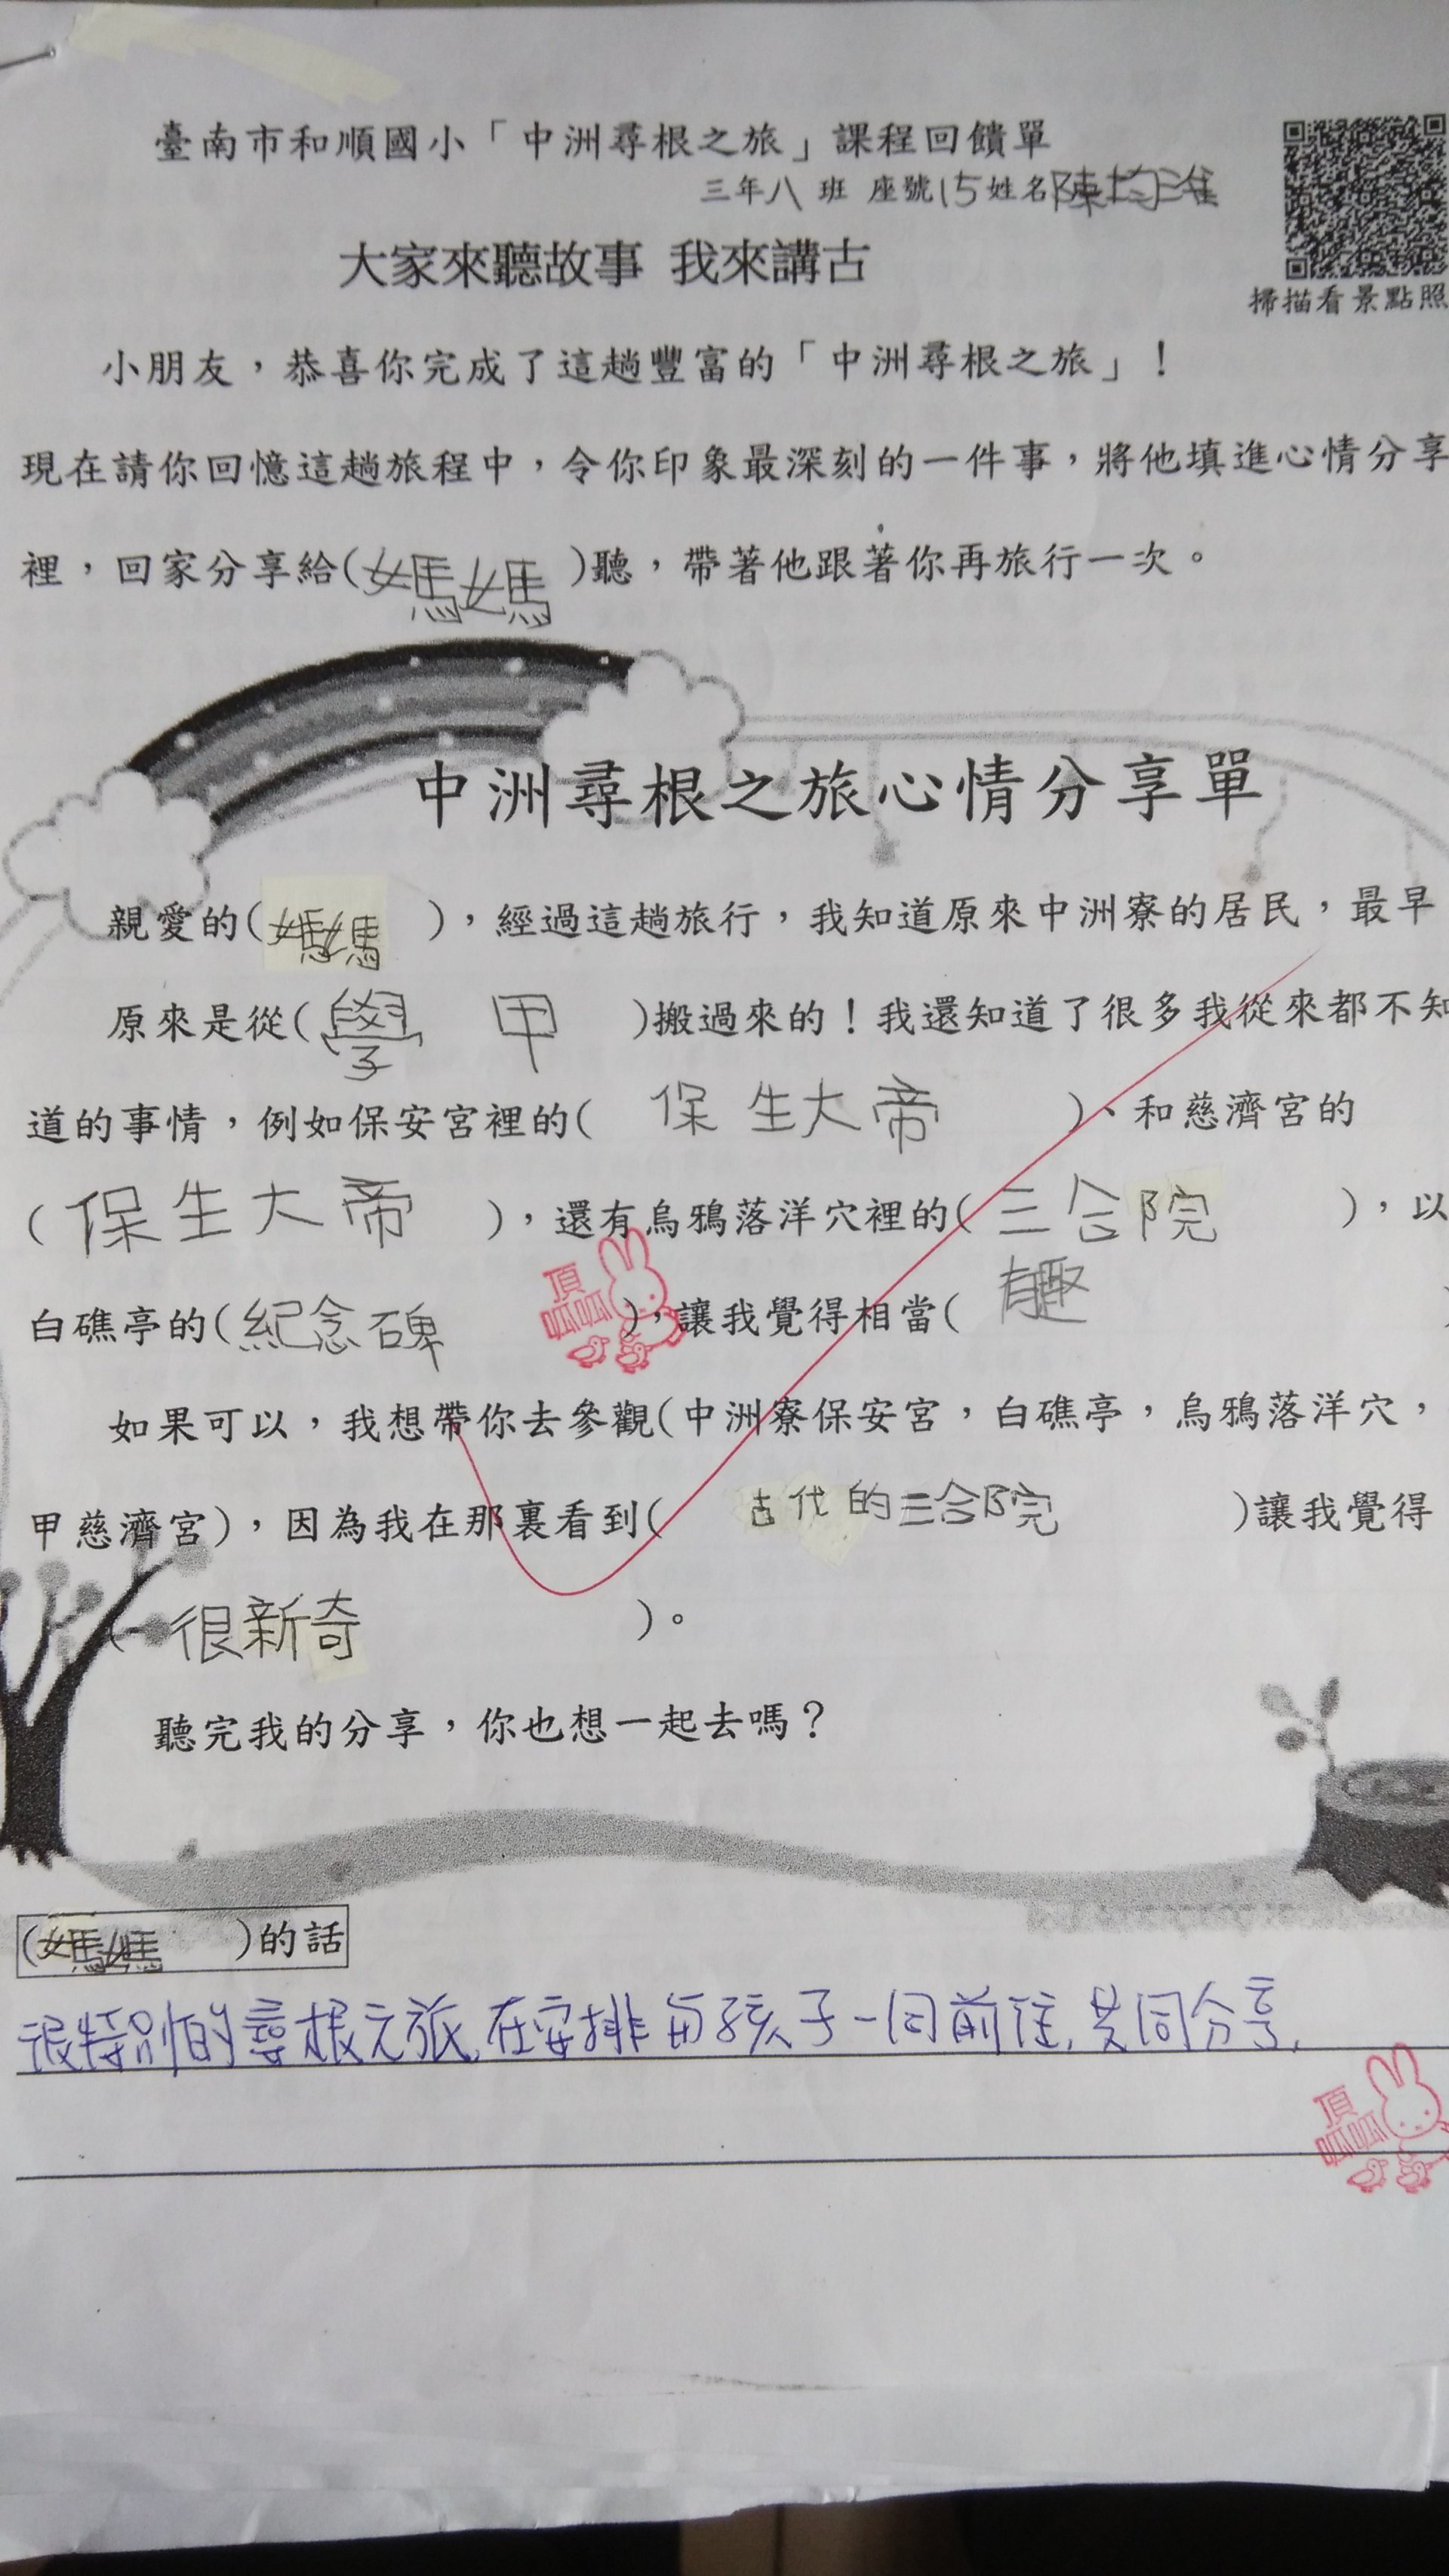 臺南市和順國小「中洲尋根之旅」課程回饋單
三年八班 座號15姓名陳均淮
掃描看景點照
大家來聽故事 我來講古
小朋友，恭喜你完成了這趟豐富的「中洲尋根之旅」！
現在請你回憶這趟旅程中，令你印象最深刻的一件事，將他填進心情分享
裡，回家分享給(媽媽)聽，帶著他跟著你再旅行一次。
中洲尋根之旅心情分享單
親愛的(媽媽)，經過這趟旅行，我知道原來中洲寮的居民，最早
原來是從(學甲)搬過來的！我還知道了很多我從來都不知
道的事情，例如保安宮裡的(保生大帝)、和慈濟宮的
(保生大帝)，還有烏鴉落洋穴裡的(三合院)，以
白礁亭的(紀念碑)，讓我覺得相當(有趣
頂呱呱
如果可以，我想帶你去參觀(中洲寮保安宮，白礁亭，烏鴉落洋穴，
甲慈濟宮)，因為我在那裏看到(古代的三合院)讓我覺得
(很新奇)。
聽完我的分享，你也想一起去嗎？
(媽媽)的話
很特別的尋根之旅,在安排與孩子一同前往,共同分享.
頂呱呱